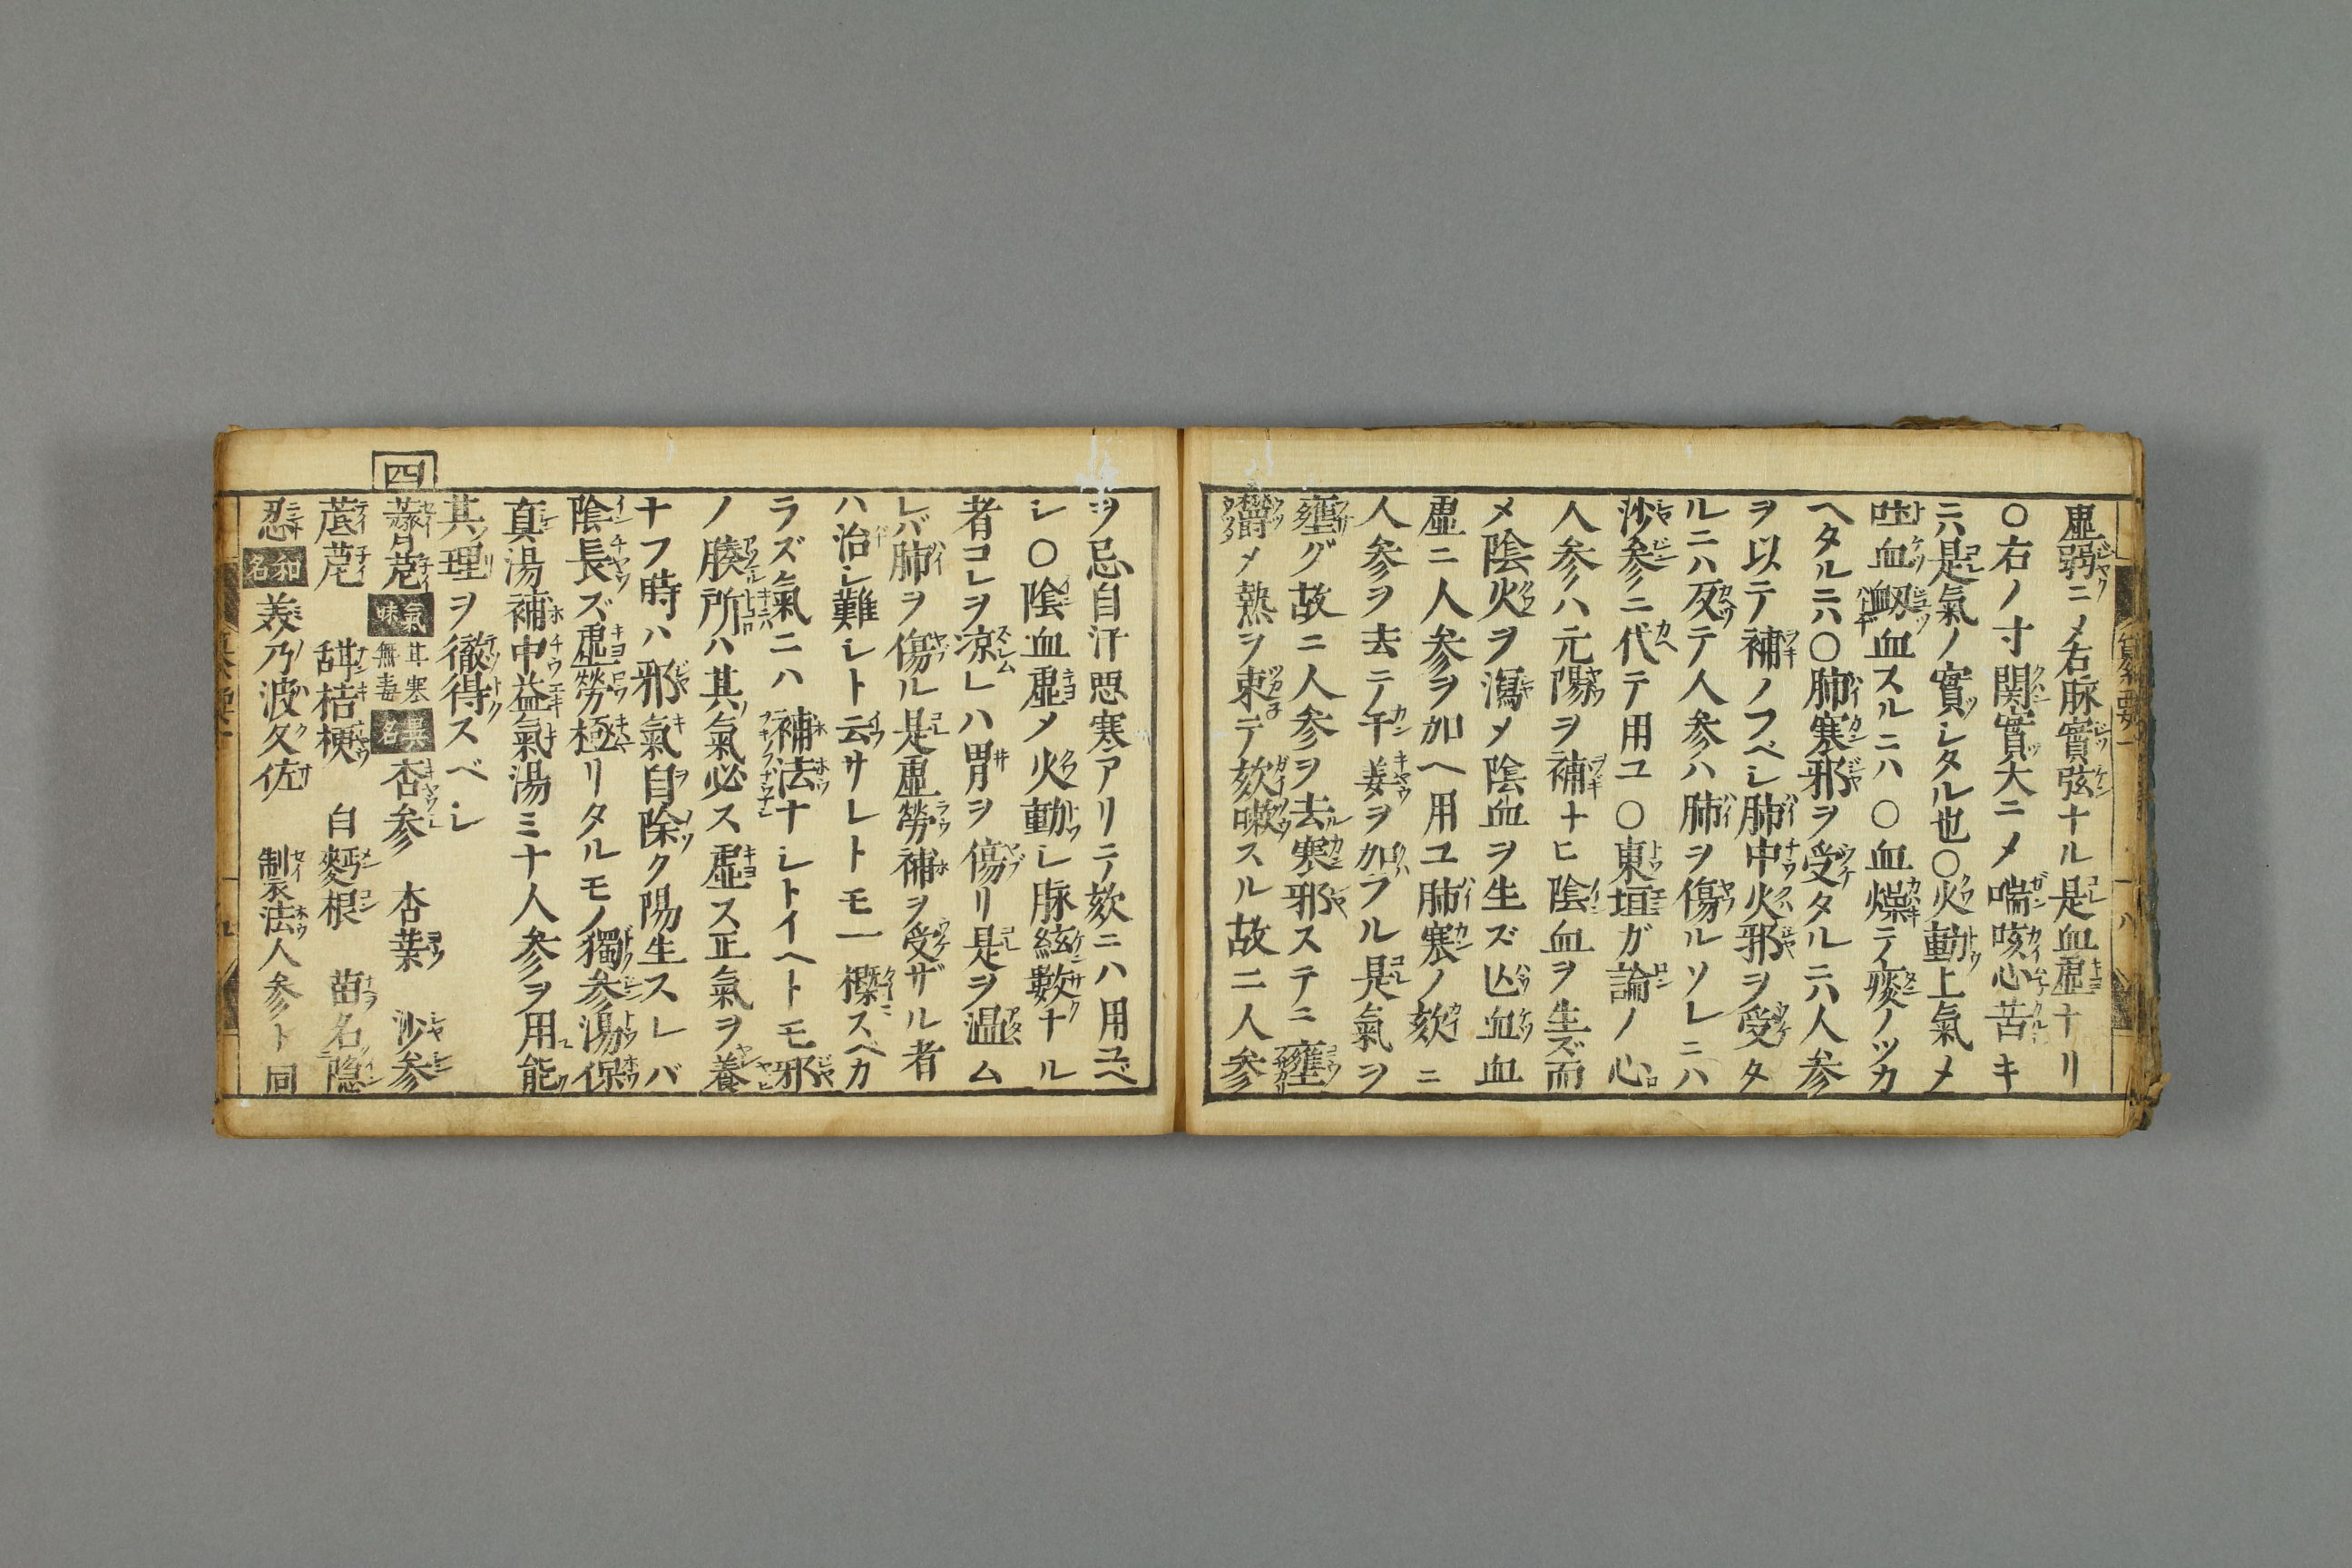 虚弱ニメ右脉實弦ナル是血虚ナリ
〇右ノ寸関實大ニメ喘咳心苦キ
ニハ是氣ノ實シタル也〇火動上氣メ
吐血衂血スルニハ〇血燥テ痰ノツカ
ヘタルニハ〇肺寒邪ヲ受タルニハ人参
ヲ以テ補ノフベシ肺中火邪ヲ受タ
ルニハ反テ人参ハ肺ヲ傷ルソレニハ
沙参ニ代テ用ユ〇東垣ガ論ノ心
人参ハ元陽ヲ補ナヒ陰血ヲ生ズ而
メ陰火ヲ瀉メ陰血ヲ生ズ亾血血
虚ニ人参ヲ加へ用ユ肺寒ノ欬ニ
人参ヲ去ニノ干姜ヲ加フル是氣ヲ
壅グ故ニ人参ヲ去寒邪ステニ壅
欝メ熱ヲ束テ欬嗽スル故ニ人参
ヲ忌自汗悪寒アリテ欬ニハ用ユベ
シ〇陰血虚メ火動シ脉絃數ナル
者コレヲ凉レハ胃ヲ傷リ是ヲ温ム
レバ肺ヲ傷ル是虚勞補ヲ受ザル者
ハ治シ難シト云サレトモ一槩スベカ
ラズ氣ニハ補法ナシトイヘトモ邪
ノ腠所ハ其氣必ス虚ス正氣ヲ養
ナフ時ハ邪氣自除ク陽生スレバ
陰長ズ虚勞極リタルモノ獨参湯保
真湯補中益氣湯ミナ人参ヲ用能
其理ヲ徹得スベシ
四
薺苨 氣味 甘寒無毒 異名 杏参 杏葉 沙参
菧苨 甜桔梗 白麪根 苗名隠
忍 和名 美乃波久佐 制法人参ト同